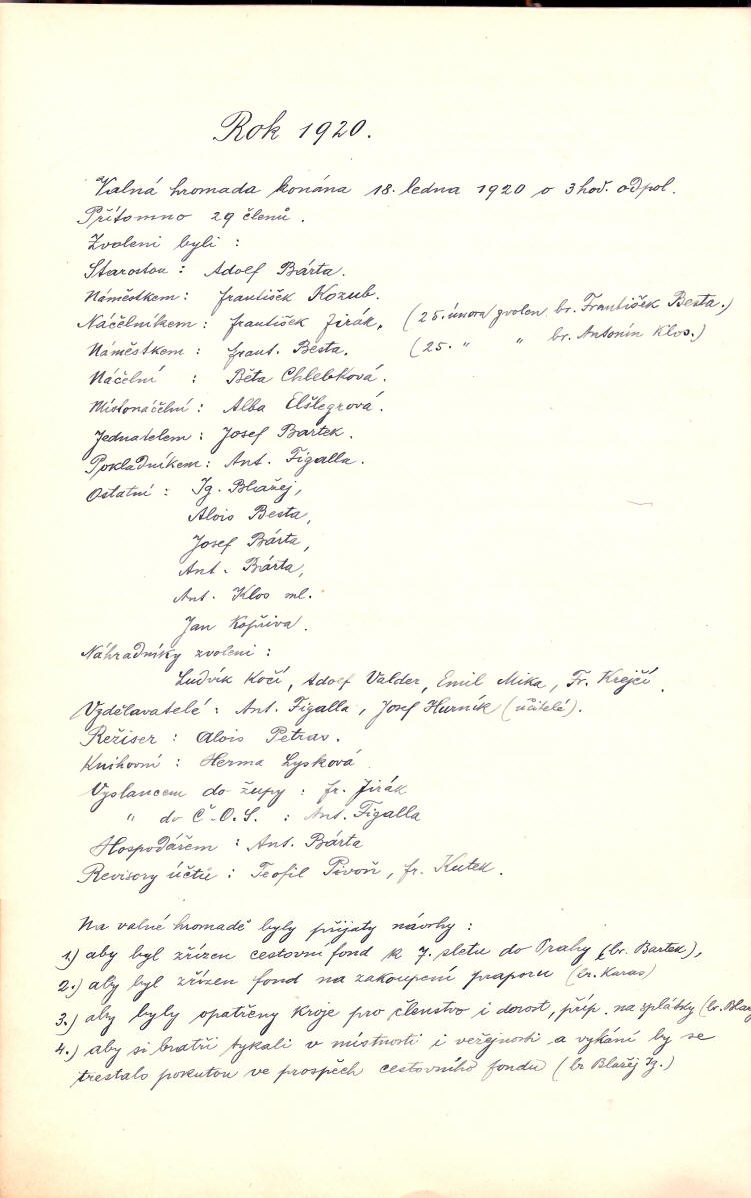 Rok 1920.
Valná hromada konána 18. ledna 1920 o 3 hod. odpol.
Přítomno 29 členů.
Zvoleni byli :
Starostou : Adolf Bárta.
Náměstkem : František Kozub.
Náčelníkem : František Jirák, (25. února zvolen br. František Besta.)
Náměstkem : Frant. Besta. (25. " " br. Antonín Klos.)
Náčelní : Běta Chlebková.
Místonáčelní : Alba Elšlegrová.
Jednatelem : Josef Bartek.
Pokladníkem : Ant. Figalla.
Ostatní : Ig. Blažej,
Alois Besta,
Josef Bárta,
Ant. Bárta,
Ant. Klos ml.
Jan Kopřiva.
Náhradníky zvoleni :
Ludvík Kočí, Adolf Valder, Emil Mika, Fr. Krejčí.
Vzdělavatelé : Ant. Figalla, Josef Hurník (učitelé).
Režiser : Alois Petrav.
Knihovní : Herma Lysková
Vyslancem do župy : fr. Jirák
" do Č.O.S. : Ant. Figalla
Hospodářem : Ant. Bárta
Revisory účtů : Teofil Pivoň, fr. Kutek.
Na valné hromadě byly přijaty návrhy :
1.) aby byl zřízen cestovní fond k 7. sletu do Prahy (br. Bartek),
2.) aby byl zřízen fond na zakoupení praporu (br. Karas)
3.) aby byly opatřeny kroje pro členstvo i dorost, příp. na splátky (br. Blažej
4.) aby si bratři tykali v místnosti i veřejnosti a vykání by se
trestalo pokutou ve prospěch cestovního fondu (br Blažej Ig.)